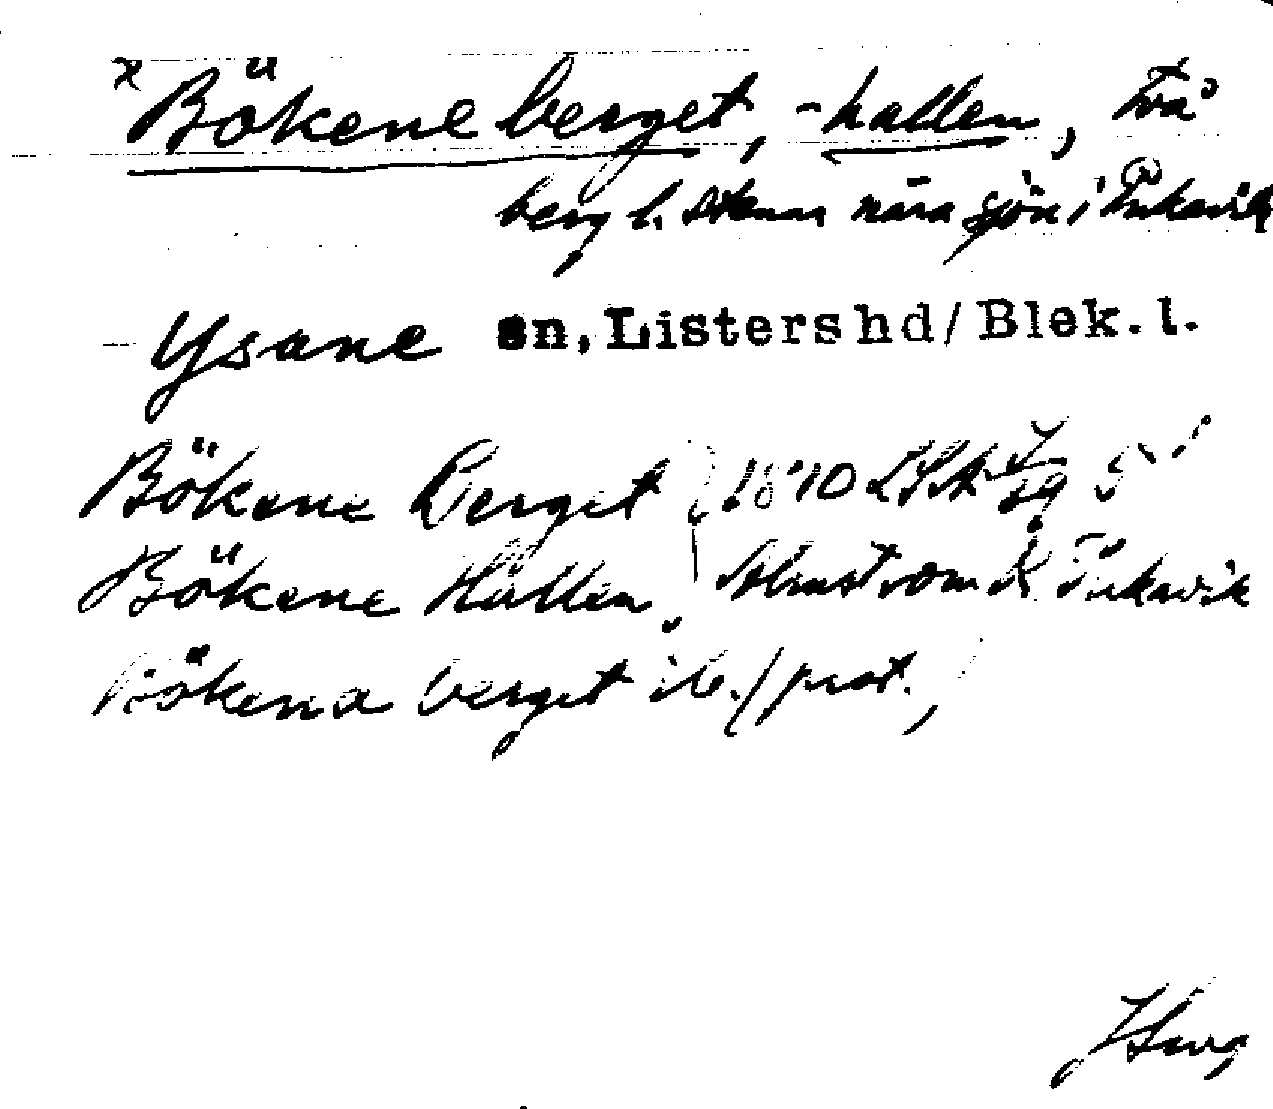 x Bökeneberget, -hallen, två
berg l. nära sjön i Pukavik
Ysane sn, Listers hd/ Blek. l.
Bökene Berget } 1810 LSA
Bökene Hallen Almström K Pukavik
Bökena berget ib. / prot.